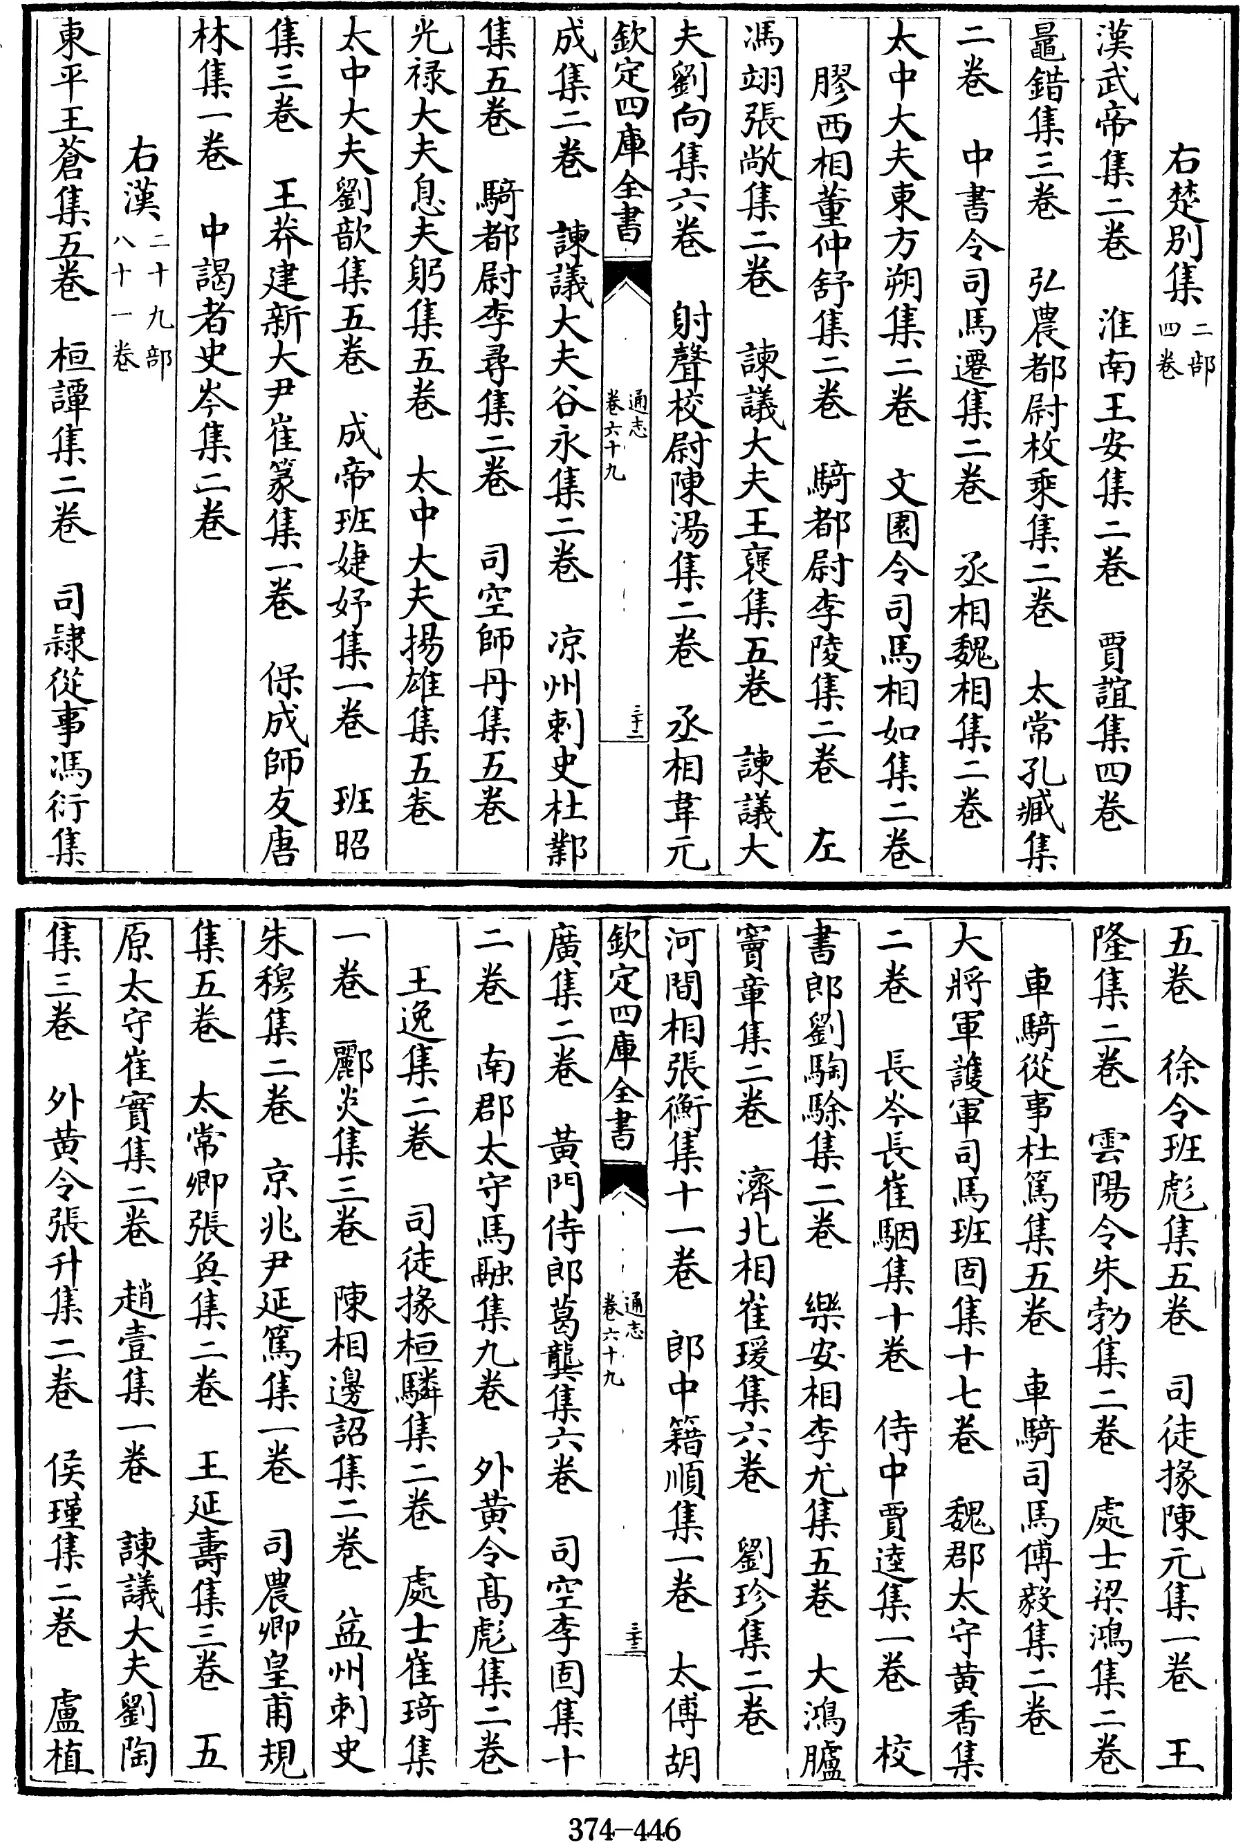 右楚別集二部四卷
漢武帝集二卷　淮南王安集二卷　賈誼集四卷
鼂錯集三卷　弘農都尉枚乘集二卷　太常孔臧集
二卷　中書令司馬遷集二卷　丞相魏相集二卷
太中大夫東方朔集二卷　文園令司馬相如集二卷
膠西相董仲舒集二卷　騎都尉李陵集二卷　左
馮翊張敞集二卷　諫議大夫王襃集五卷　諫議大
夫劉向集六卷　射聲校尉陳湯集二卷　丞相韋元
欽定四庫全書　通志卷六十九　三十二
成集二卷　諫議大夫谷永集二卷　凉州刺史杜鄴
集五卷　騎都尉李尋集二卷　司空師丹集五卷
光禄大夫息夫躬集五卷　太中大夫揚雄集五卷
太中大夫劉歆集五卷　成帝班婕妤集一卷　班昭
集三卷　王莽建新大尹崔篆集一卷　保成師友唐
林集一卷　中謁者史岑集二卷
右漢二十九部八十一卷
東平王蒼集五卷　桓譚集二卷　司隸從事馮衍集
五卷　徐令班彪集五卷　司徒掾陳元集一卷　王
隆集二卷　雲陽令朱勃集二卷　處士梁鴻集二卷
車騎從事杜篤集五卷　車騎司馬傅毅集二卷
大將軍護軍司馬班固集十七卷　魏郡太守黄香集
二卷　長岑長崔駰集十卷　侍中賈逵集一卷　校
書郎劉騊駼集二卷　樂安相李尤集五卷　大鴻臚
竇章集二卷　濟北相崔瑗集六卷　劉珍集二卷
河間相張衡集十一卷　郎中籍順集一卷　太傅胡
欽定四庫全書　通志卷六十九　三十三
廣集二卷　黄門侍郎葛龔集六卷　司空李固集十
二卷　南郡太守馬融集九卷　外黄令高彪集二卷
王逸集二卷　司徒掾桓驎集二卷　處士崔琦集
一卷　酈炎集三卷　陳相邊韶集二卷　益州刺史
朱穆集二卷　京兆尹延篤集一卷　司農卿皇甫規
集五卷　太常卿張奐集二卷　王延壽集三卷　五
原太守崔寔集二卷　趙壹集一卷　諫議大夫劉陶
集三卷　外黄令張升集二卷　侯瑾集二卷　盧植
374-446